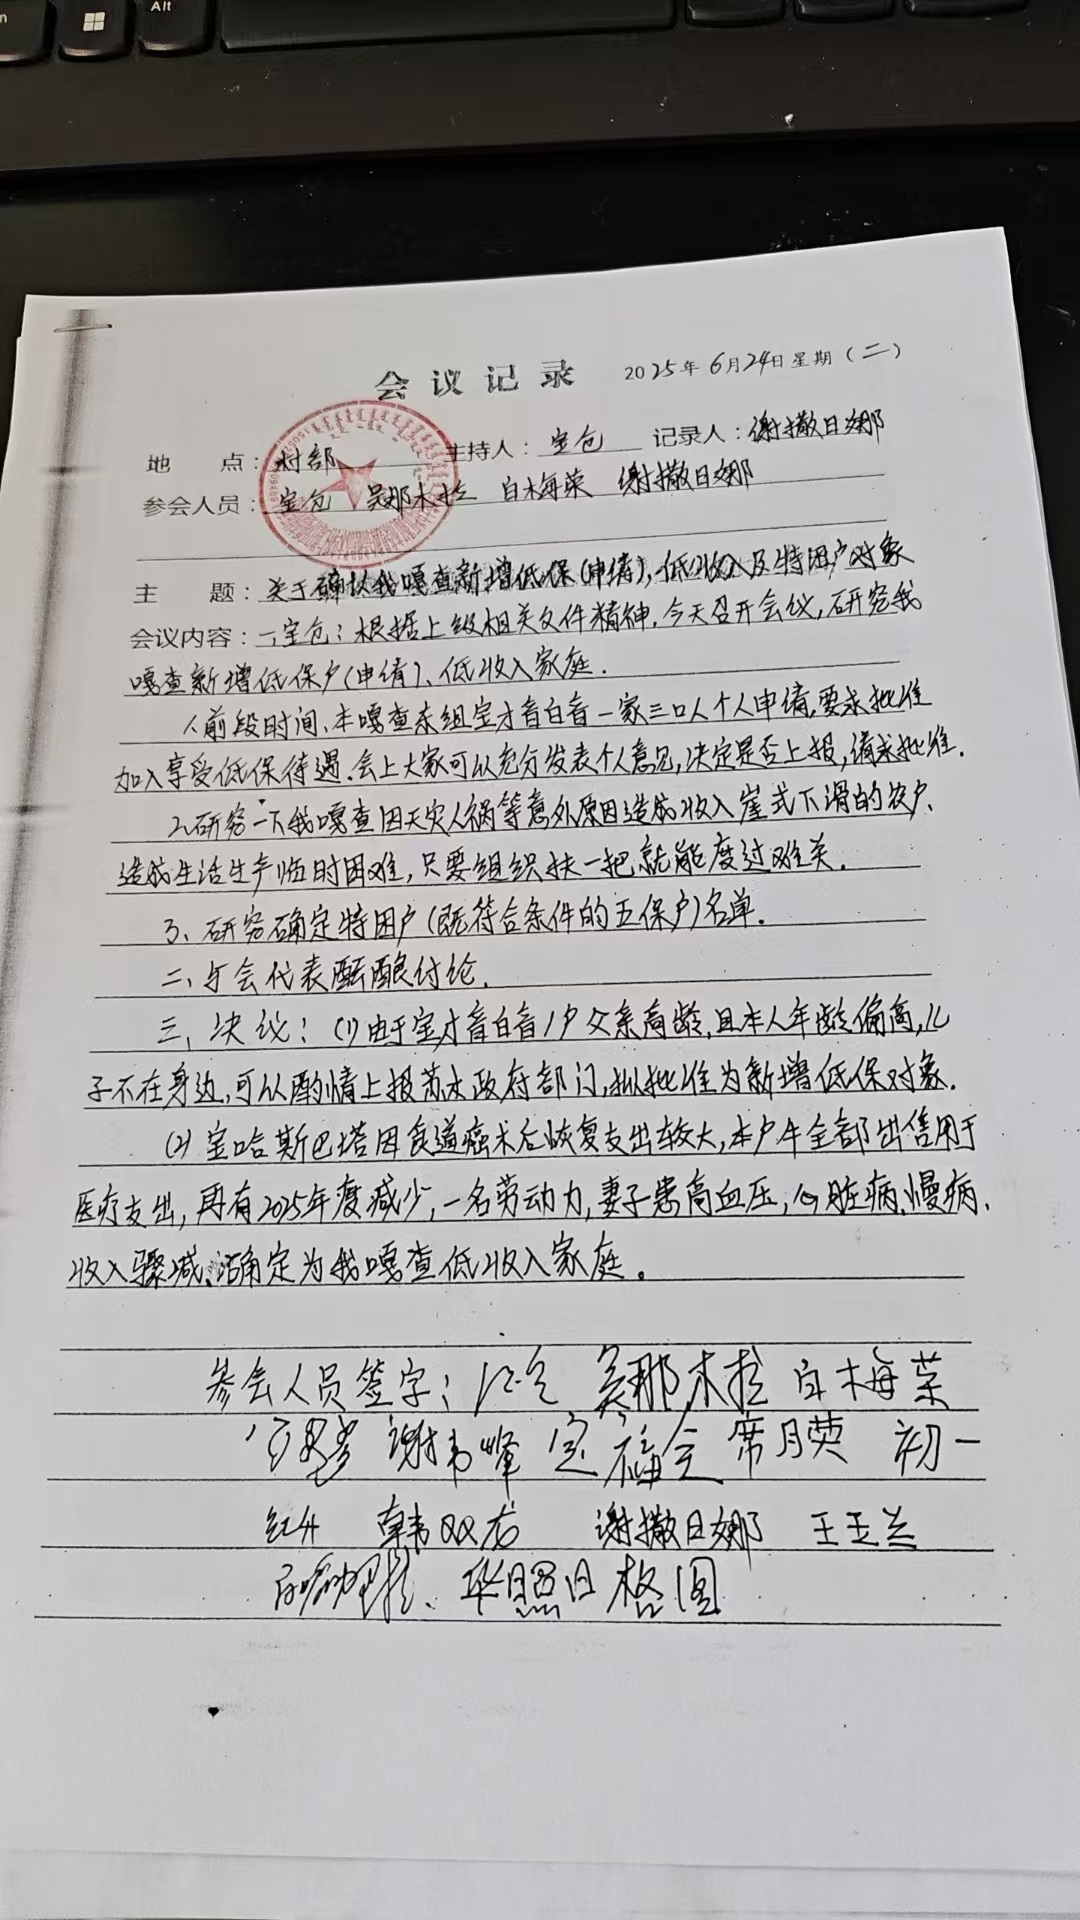 Alt
会议记录 2025年6月24日星期(二)
地 点: 村部 主持人: 宝仓 记录人: 谢撒日娜
参会人员: 宝仓 吴那木拉 白梅荣 谢撒日娜
主 题: 关于确认我嘎查新增低保(申请),低收入及特困户对象
会议内容: 一,宝仓:根据上级相关文件精神,今天召开会议,研究我
嘎查新增低保户(申请)、低收入家庭.
1.前段时间、本嘎查东组宝才音白音一家三口人个人申请,要求批准
加入享受低保待遇.会上大家可以充分发表个人意见,决定是否上报,请求批准.
2.研究一下我嘎查因天灾人祸等意外原因造成收入崖式下滑的农户、
造成生活生产临时困难,只要组织扶一把就能度过难关.
3、研究确定特困户(既符合条件的五保户)名单.
二、与会代表酝酿讨论.
三、决议:(1)由于宝才音白音1户父亲高龄,且本人年龄偏高,儿
子不在身边,可以酌情上报苏木政府部门,拟批准为新增低保对象.
(2)宝哈斯巴塔因食道癌术后恢复支出较大,本户牛全部出售用于
医疗支出,再有2025年度减少,一名劳动力,妻子患高血压,心脏病、慢病、
收入骤减、确定为我嘎查低收入家庭。
参会人员签字: 吴那木拉 白梅荣
谢 峰 宝福仓 席月英 初一
红升 韩双龙 谢撒日娜 王玉兰
照日格图